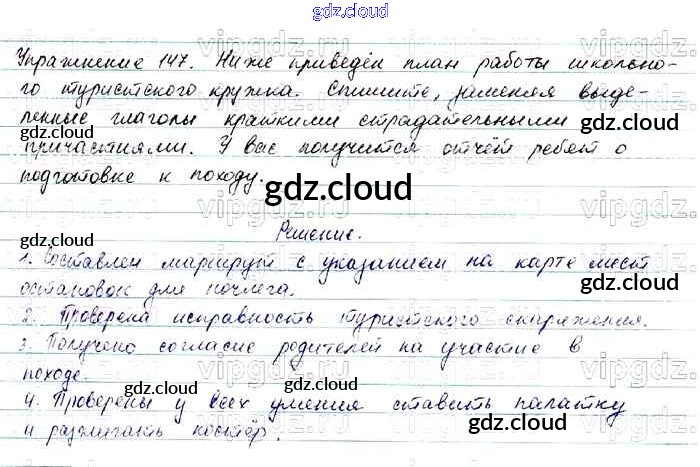 gdz.cloud
Упражнение 147. Ниже приведён план работы школьно-
го туристского кружка. Спишите, заменяя выде-
ленные глаголы краткими страдательными
причастиями. У вас получится отчёт ребят о
подготовке к походу.
Решение.
1. Составлен маршрут с указанием на карте мест
остановок для ночлега.
2. Проверена исправность туристского снаряжения.
3. Получено согласие родителей на участие в
походе.
4. Проверены у всех умения ставить палатку
и разжигать костёр.